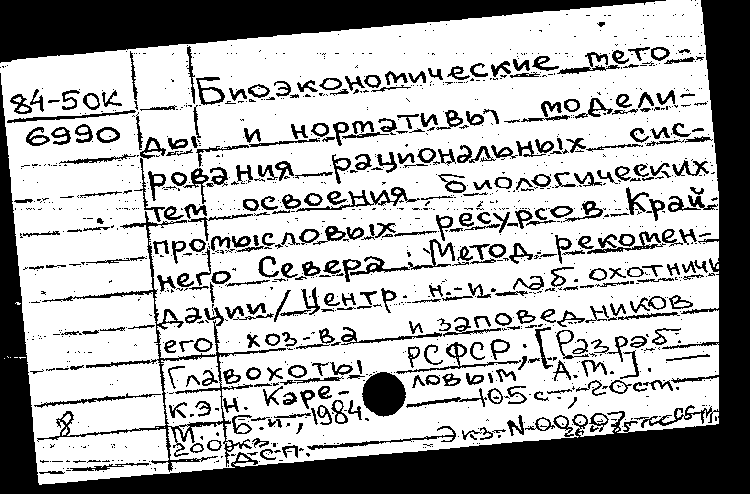 84-50К
6990
Биоэкономические мето-
ды и нормативы модели-
рования рациональных сис-
тем освоения биологических
промысловых ресурсов Край-
него Севера : Метод. рекомен-
дации / Центр. н.-и. лаб. охотничь
его хоз-ва и заповедников
Главохоты РСФСР; [Разраб.
к.э.н. Каре- ловым А.М.]. —
М. : Б.и., 1984. — 105 с., 20 см.
8
200 экз. Экз. N 00007
ДСП.